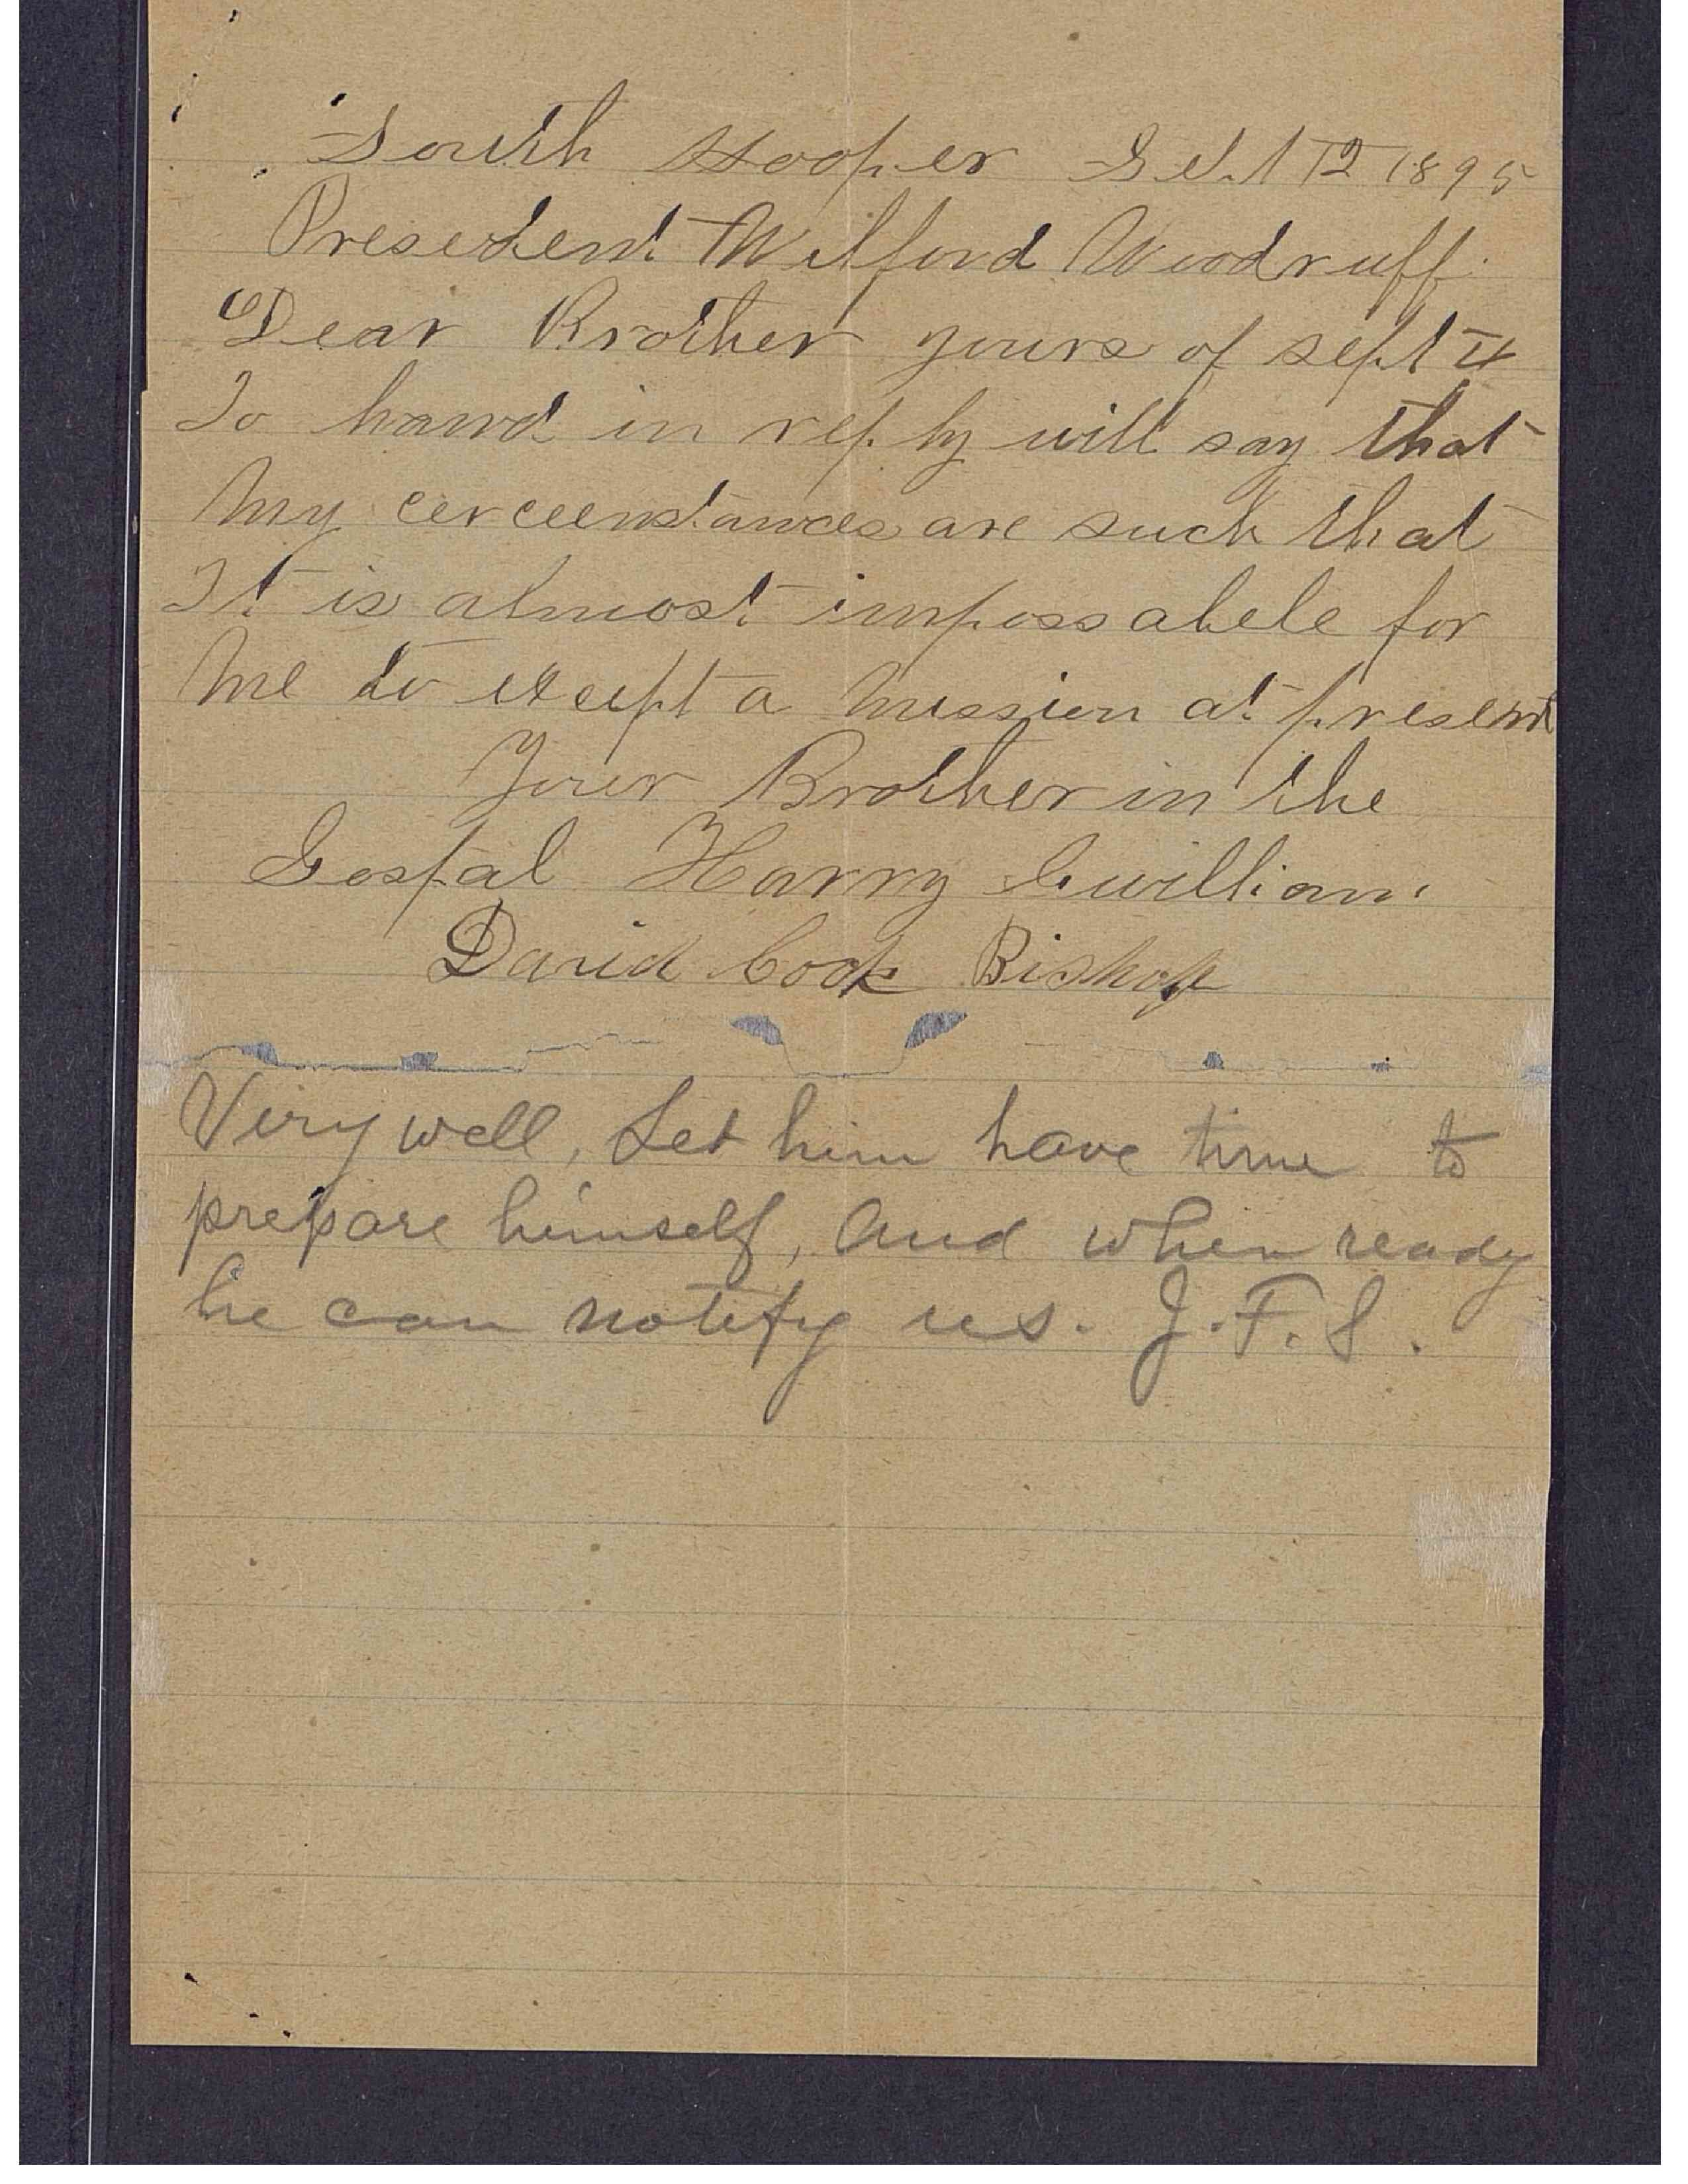 South Hooper Sept 12 1895
Presedent Wilford Woodruff.
Dear Brother yours of sept 4
To hand in reply will say that
My cercumstances are such that
It is almost impossabele for
Me to except a mission at present
Your Brother in the
Gospal Harry Gwilliam.
David Cook Bishop
Very well, Let him have time to
prepare himself, and when ready
he can notify us. J.F.S.